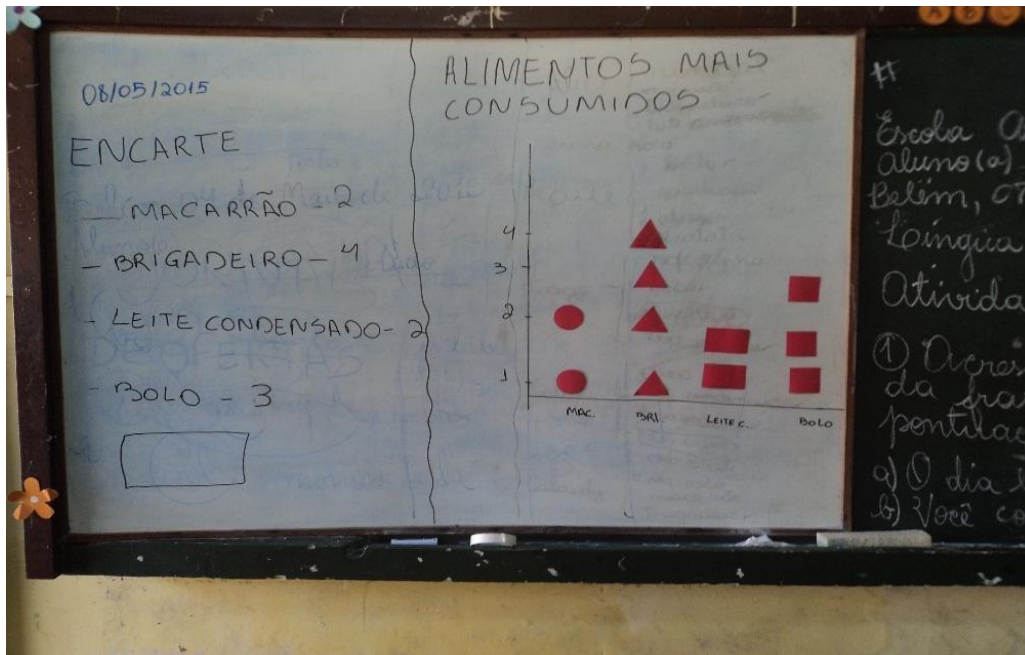 08/05/2015
ENCARTE
— MACARRÃO - 2
- BRIGADEIRO - 4
- LEITE CONDENSADO - 2
- BOLO - 3
ALIMENTOS MAIS
CONSUMIDOS
4
3
2
1
MAC. BRI. LEITE C. BOLO
A B C
#
Escola
Aluno(a)
Belém,
Língua
①
da
a) O dia
b) Você